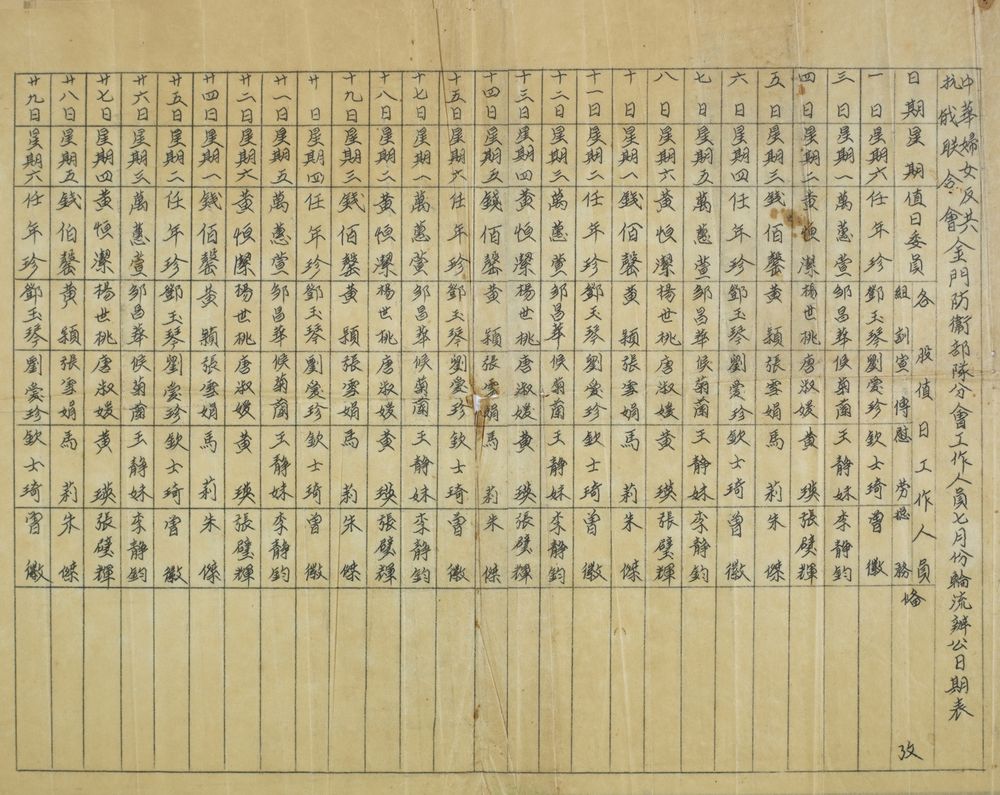 中華婦女反共抗俄联合會金門防衛部隊分會工作人員七月份輪流辦公日期表
日期 星期 值日委員 各股值日工作人員 組訓 宣傳 慰勞 總務 俻攷
一日 星期六 任年珍 鄧玉琴 劉愛珍 欽士琦 曾徽
三日 星期一 萬蕙萱 邹昌華 候菊蘭 王静妹 李静鈞
四日 星期二 黄恒潔 楊世桃 唐淑媛 黄瑛 張璧輝
五日 星期三 錢佰馨 黄穎 張雪娟 馬莉 朱傑
六日 星期四 任年珍 鄧玉琴 劉愛珍 欽士琦 曾徽
七日 星期五 萬蕙萱 邹昌華 候菊蘭 王静妹 李静鈞
八日 星期六 黄恒潔 楊世桃 唐淑媛 黄瑛 張璧輝
十日 星期一 錢佰馨 黄穎 張雪娟 馬莉 朱傑
十一日 星期二 任年珍 鄧玉琴 劉愛珍 欽士琦 曾徽
十二日 星期三 萬蕙萱 邹昌華 候菊蘭 王静妹 李静鈞
十三日 星期四 黄恒潔 楊世桃 唐淑媛 黄瑛 張璧輝
十四日 星期五 錢佰馨 黄穎 張雪娟 馬莉 朱傑
十五日 星期六 任年珍 鄧玉琴 劉愛珍 欽士琦 曾徽
十七日 星期一 萬蕙萱 邹昌華 候菊蘭 王静妹 李静鈞
十八日 星期二 黄恒潔 楊世桃 唐淑媛 黄瑛 張璧輝
十九日 星期三 錢佰馨 黄穎 張雪娟 馬莉 朱傑
廿日 星期四 任年珍 鄧玉琴 劉愛珍 欽士琦 曾徽
廿一日 星期五 萬蕙萱 邹昌華 候菊蘭 王静妹 李静鈞
廿二日 星期六 黄恒潔 楊世桃 唐淑媛 黄瑛 張璧輝
廿四日 星期一 錢佰馨 黄穎 張雪娟 馬莉 朱傑
廿五日 星期二 任年珍 鄧玉琴 劉愛珍 欽士琦 曾徽
廿六日 星期三 萬蕙萱 邹昌華 候菊蘭 王静妹 李静鈞
廿七日 星期四 黄恒潔 楊世桃 唐淑媛 黄瑛 張璧輝
廿八日 星期五 錢伯馨 黄穎 張雪娟 馬莉 朱傑
廿九日 星期六 任年珍 鄧玉琴 劉愛珍 欽士琦 曾徽